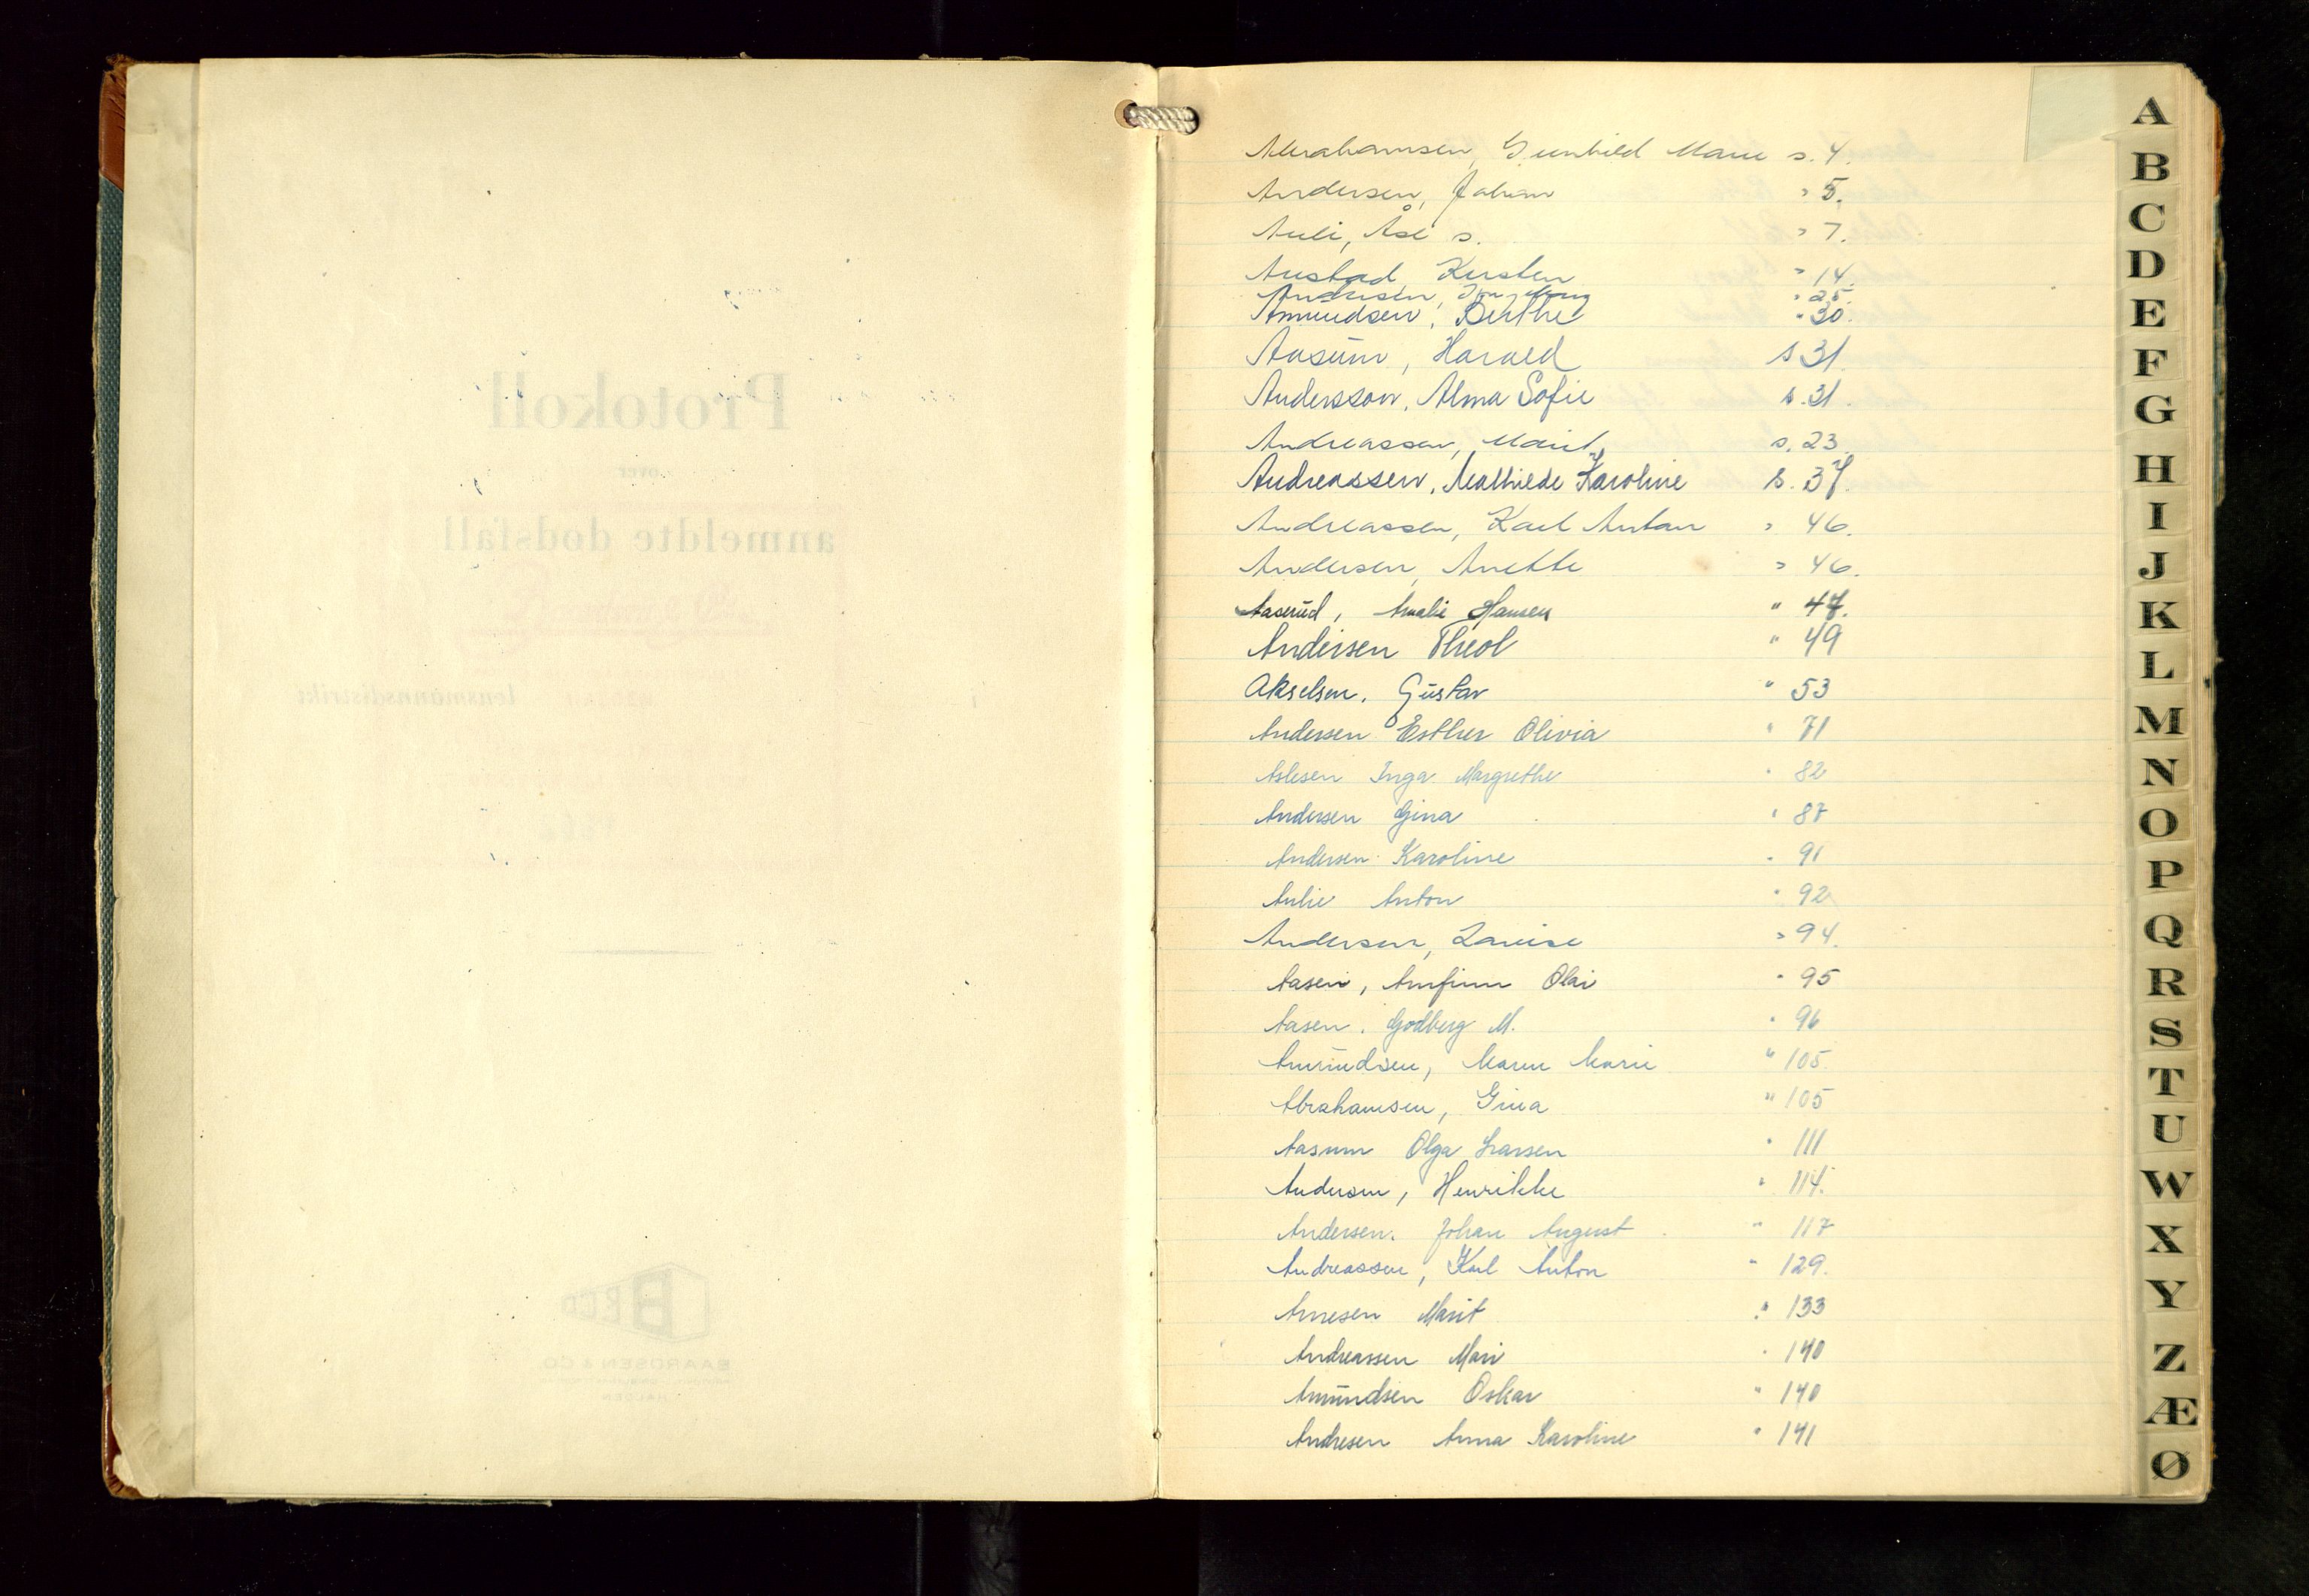 Protokoll
over
anmeldte dødsfall
i lensmannsdistrikt
BAARDSEN & CO
HALDEN
Abrahamsen, Gunhild Marie s. 4.
Andersen, Johan " 5.
Auli, Åse s. " 7.
Austad Kirsten " 14.
Andersen, " 25.
Amundsen, Berthe " 30.
Aasum, Harald s 31.
Andersson, Alma Sofie s. 31.
Andreassen, Marit s. 23.
Andreassen, Mathilde Karoline s. 37.
Andreassen, Karl Anton " 46.
Andersen, Anette " 46.
Aaserud, Amalie Hansen " 47.
Andersen Theol " 49
Akselsen, Gustav " 53
Andersen Esther Olivia " 71
Aslesen Inga Margrethe " 82
Andersen Gina " 87
Andersen Karoline " 91
Aulie Anton " 92
Andersen, Lovise " 94.
Aasen, Arnfinn Olav " 95
Aasen, Godberg M. " 96
Amundsen, Maren Marie " 105
Abrahamsen, Gina " 105
Aasum Olga Larsen " 111
Andersen, Henrikke " 114.
Andersen, Johan August " 117
Andreassen, Karl Anton " 129.
Arnesen Marit " 133
Andreassen Mari " 140
Amundsen Oskar " 140
Andresen Anna Karoline " 141
A
B
C
D
E
F
G
H
I
J
K
L
M
N
O
P
Q
R
S
T
U
W
X
Y
Z
Æ
Ø